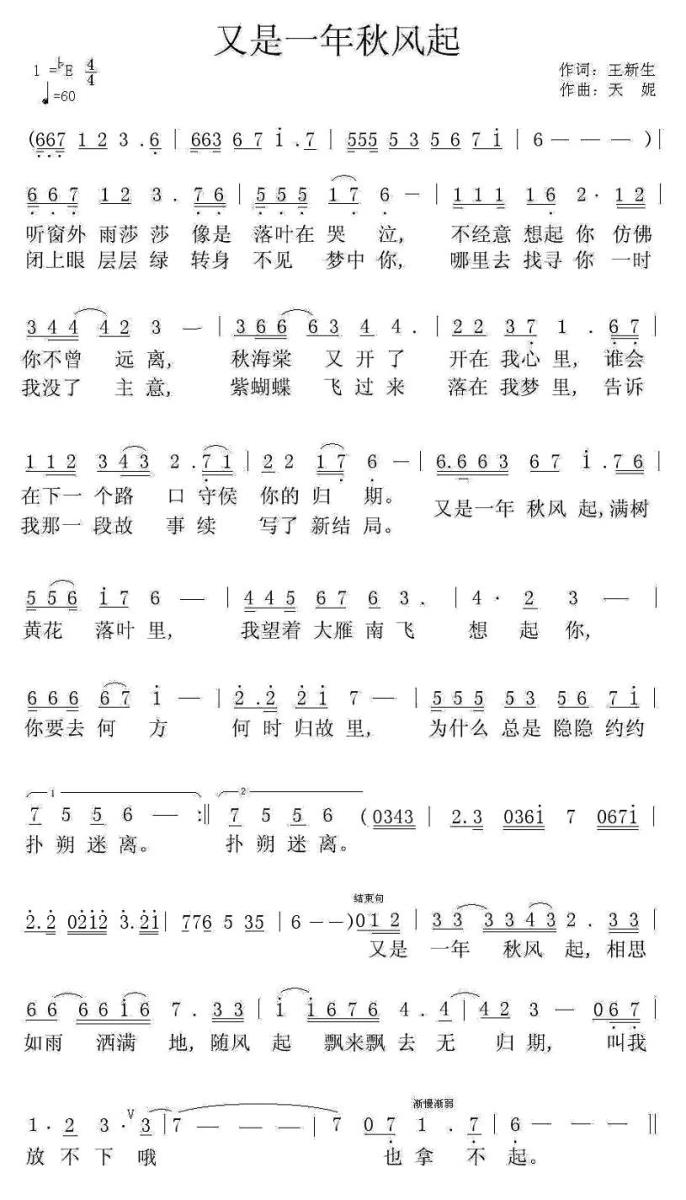 又是一年秋风起
1=♭E 4/4
♩=60
作词：王新生
作曲：天 妮
(667 1 2 3 . 6 | 663 6 7 i . 7 | 555 5 3 5 6 7 i | 6 — — — )|
6 6 7 1 2 3 . 7 6 | 5 5 5 1 7 6 — | 1 1 1 1 6 2 · 1 2 |
听窗外 雨莎莎 像是 落叶在 哭 泣, 不经意 想起 你 仿佛
闭上眼 层层绿 转身 不见 梦中 你, 哪里去 找寻 你 一时
3 4 4 4 2 3 — | 3 6 6 6 3 4 4 . | 2 2 3 7 1 . 6 7 |
你不曾 远 离, 秋海棠 又 开 了 开在 我心 里, 谁会
我没了 主 意, 紫蝴蝶 飞 过 来 落在 我梦 里, 告诉
1 1 2 3 4 3 2 . 7 1 | 2 2 1 7 6 — | 6.6 6 3 6 7 i . 7 6 |
在下一 个路 口 守侯 你的 归 期。 又是一年 秋风 起,满树
我那一 段故 事 续 写了 新结 局。
5 5 6 i 7 6 — | 4 4 5 6 7 6 3 . | 4 · 2 3 — |
黄花 落叶 里, 我望着 大雁 南 飞 想 起 你,
6 6 6 6 7 i — | 2 . 2 2 i 7 — | 5 5 5 5 3 5 6 7 i |
你要去 何 方 何 时 归故 里, 为什么 总是 隐隐 约约
1 2
7 5 5 6 — :‖ 7 5 5 6 (0343 | 2.3 0361 7 067i |
扑 朔 迷 离。 扑 朔 迷 离。
2.2 02i2 3.2i | 776 5 35 | 6 — — )0 1 2 | 3 3 3 3 4 3 2 . 3 5 |
结束句
又是 一年 秋风 起, 相思
6 6 6 6 i 6 7 . 3 3 | i i 6 7 6 4 . 4 | 4 2 3 — 0 6 7 |
如雨 洒满 地, 随风 起 飘来飘 去 无 归 期, 叫我
渐慢渐弱
1 · 2 3 · V 3 | 7 — — — | 7 0 7 1 . 7 | 6 — — — ‖
放 不 下 哦 也 拿 不 起。